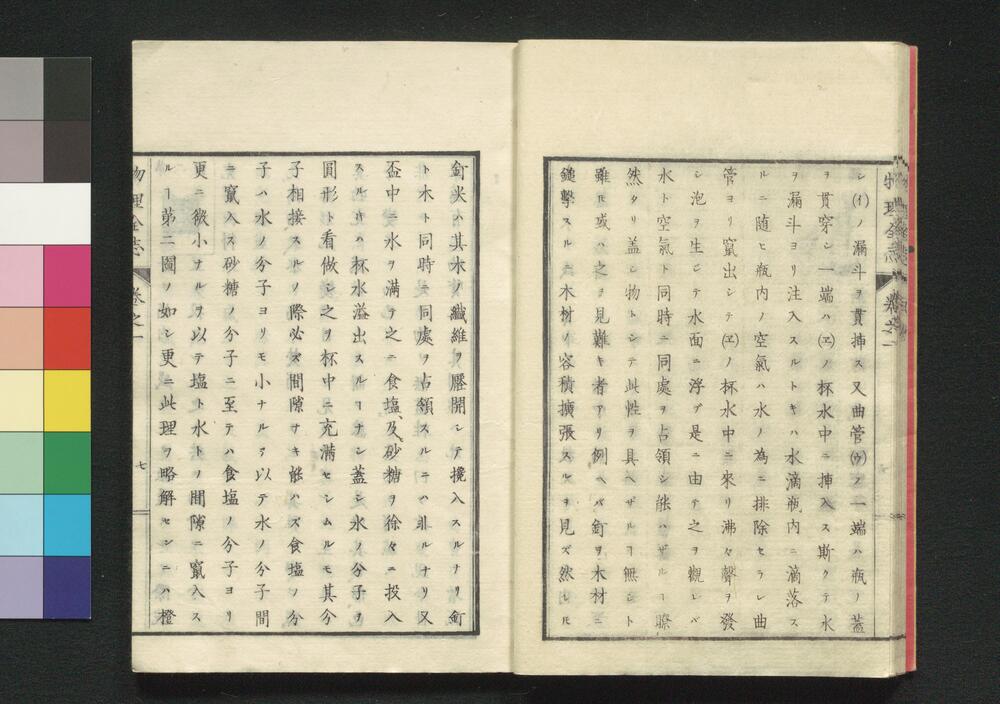 シ(イ)ノ漏斗ヲ貫揷ス又曲管(ウ)ノ一端ハ瓶ノ蓋
ヲ貫穿シ一端ハ(ヱ)ノ杯水中ニ揷入ス斯クテ水
ヲ漏斗ヨリ注入スルトキハ水滴瓶内ニ滴落ス
ルニ随ヒ瓶内ノ空氣ハ水ノ為ニ排除セラレ曲
管ヨリ竄出シテ(ヱ)ノ杯水中ニ來リ沸々聲ヲ發
シ泡ヲ生シテ水面ニ浮ブ是ニ由テ之ヲ觀レバ
水ト空氣ト同時ニ同處ヲ占領シ能ハザルヿ瞭
然タリ蓋シ物トシテ此性ヲ具ヘザルヿ無シト
雖ヒ或ハ之ヲ見難キ者アリ例ヘバ釘ヲ木材ニ
鎚擊スルニ木材ノ容積擴張スルヲ見ズ然レㇳ゙モ
物理全志 卷之一
釘尖ハ其木ノ纖維ヲ壓開シテ攙入スルナリ釘
ト木ト同時ニ同處ヲ占領スルニハ非ルナリ又
盃中ニ水ヲ滿テ之ニ食塩及砂糖ヲ徐々ニ投入
スルㇳ゙モハ杯水溢出スルヿナシ蓋シ水ノ分子ヲ
圓形ト看做シ之ヲ杯中ニ充滿セシムルモ其分
子相接スルノ際必ズ間隙ナキ能ハズ食塩ノ分
子ハ水ノ分子ヨリモ小ナルヲ以テ水ノ分子間
ニ竄入ス砂糖ノ分子ニ至テハ食塩ノ分子ヨリ
更ニ微小ナルヲ以テ塩ト水トノ間隙ニ竄入ス
ルヿ第二圖ノ如シ更ニ此理ヲ略解センニハ橙
物理全志 卷之一 七